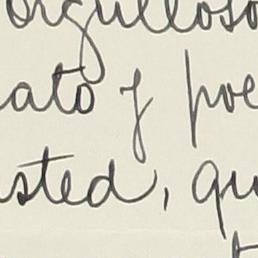 orgulloso
ato y poe
usted, qu